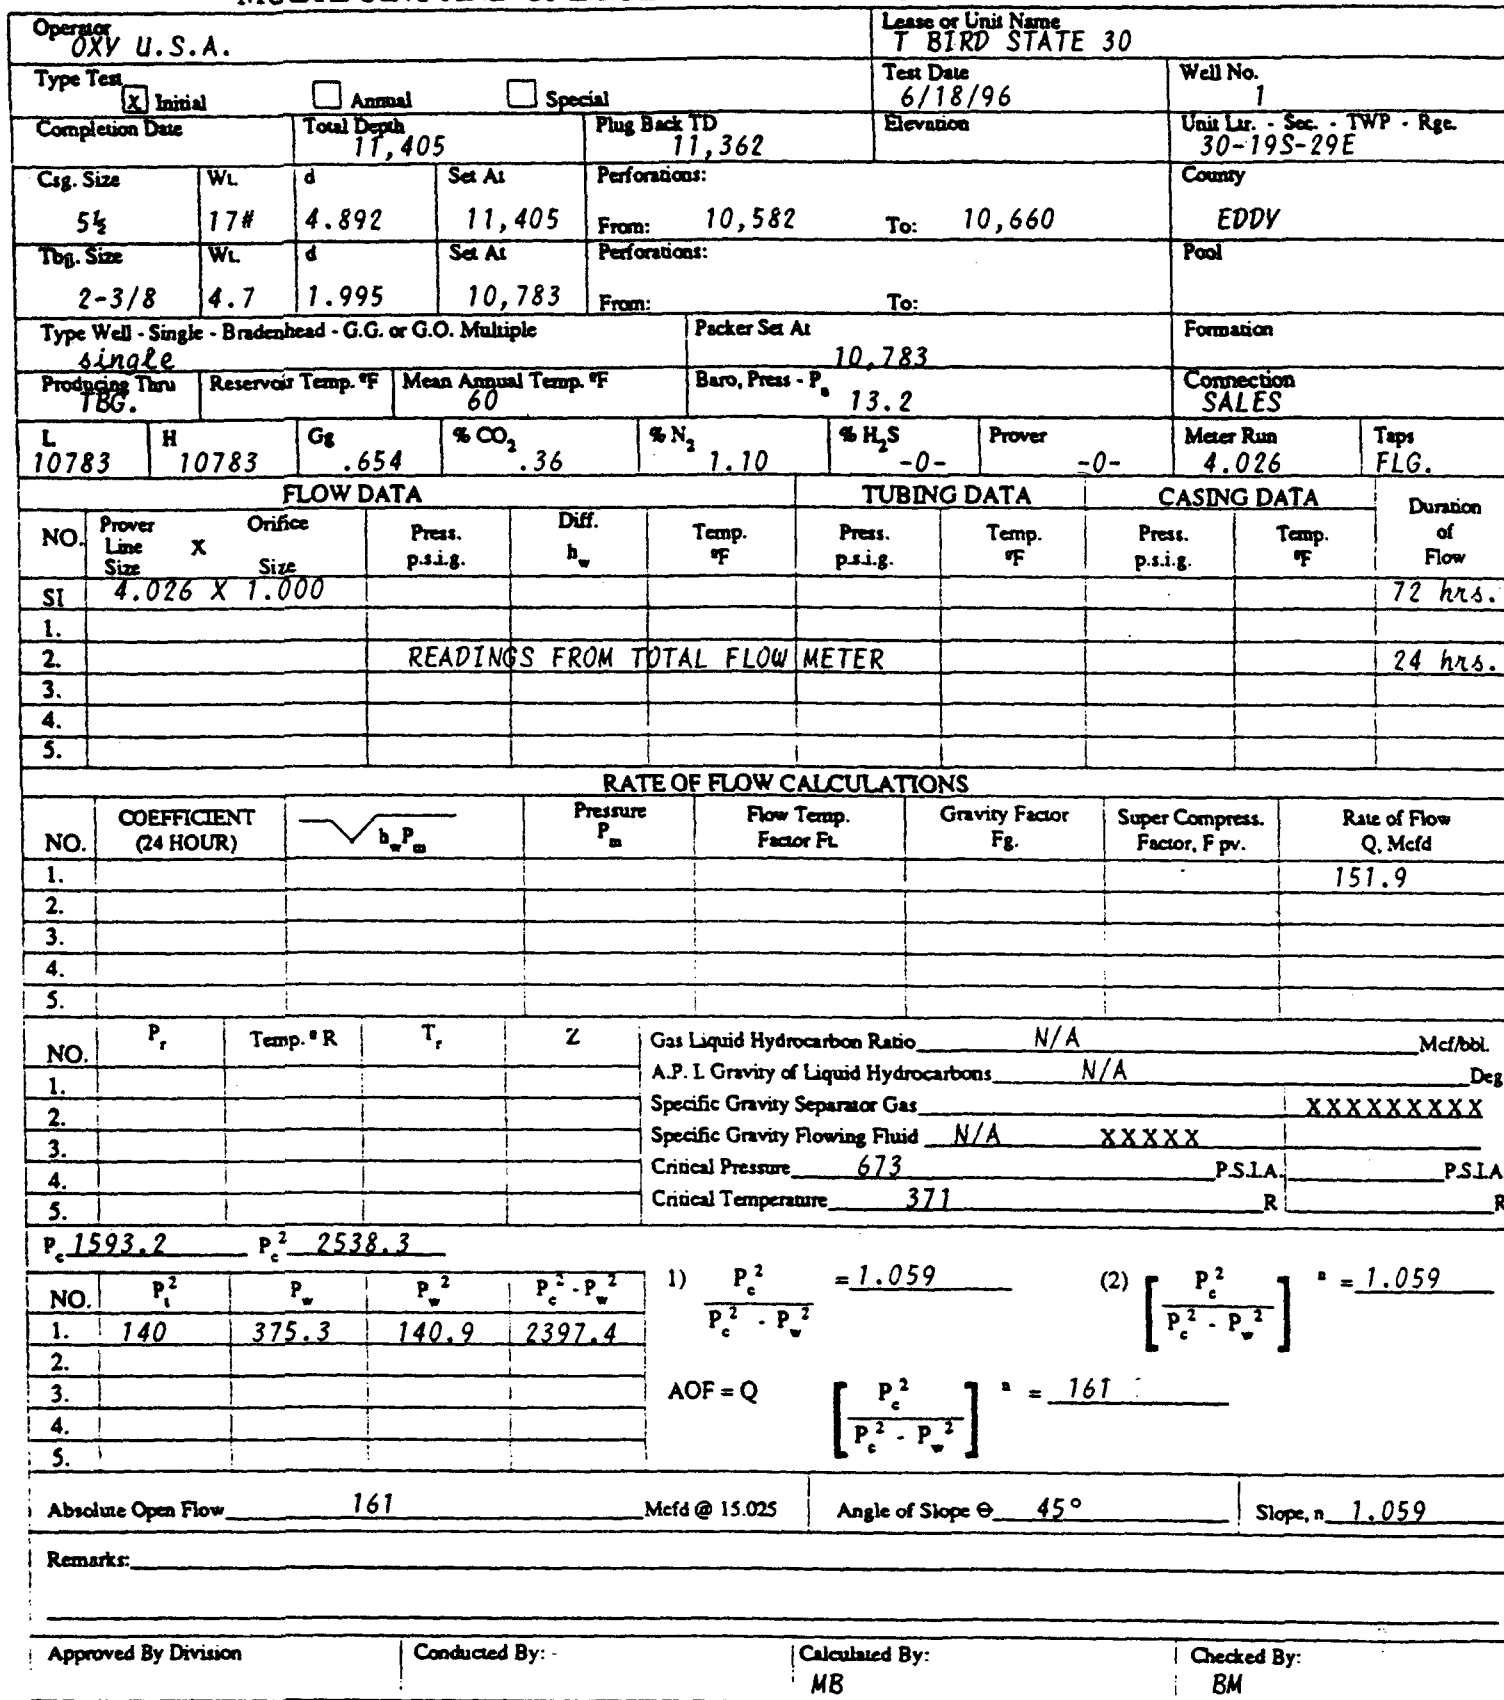 Operator Lease or Unit Name
OXY U.S.A. T BIRD STATE 30
Type Test Test Date Well No.
X Initial Annual Special 6/18/96 1
Completion Date Total Depth Plug Back TD Elevation Unit Ltr. - Sec. - TWP - Rge.
11,405 11,362 30-19S-29E
Csg. Size Wt. d Set At Perforations: County
5½ 17# 4.892 11,405 From: 10,582 To: 10,660 EDDY
Tbg. Size Wt. d Set At Perforations: Pool
2-3/8 4.7 1.995 10,783 From: To:
Type Well - Single - Bradenhead - G.G. or G.O. Multiple Packer Set At Formation
single 10,783
Producing Thru Reservoir Temp. °F Mean Annual Temp. °F Baro, Press - Pa Connection
TBG. 60 13.2 SALES
L H Gg % CO2 % N2 % H2S Prover Meter Run Taps
10783 10783 .654 .36 1.10 -0- -0- 4.026 FLG.
FLOW DATA TUBING DATA CASING DATA Duration of Flow
NO. Prover Line Size X Orifice Size Press. p.s.i.g. Diff. hw Temp. °F Press. p.s.i.g. Temp. °F Press. p.s.i.g. Temp. °F
SI 4.026 X 1.000 72 hrs.
1.
2. READINGS FROM TOTAL FLOW METER 24 hrs.
3.
4.
5.
RATE OF FLOW CALCULATIONS
NO. COEFFICIENT (24 HOUR) √hwPm Pressure Pm Flow Temp. Factor Ft. Gravity Factor Fg. Super Compress. Factor, F pv. Rate of Flow Q, Mcfd
1. 151.9
2.
3.
4.
5.
NO. Pr Temp. °R Tr Z
1.
2.
3.
4.
5.
Gas Liquid Hydrocarbon Ratio N/A Mcf/bbl.
A.P. I. Gravity of Liquid Hydrocarbons N/A Deg
Specific Gravity Separator Gas XXXXXXXXX
Specific Gravity Flowing Fluid N/A XXXXX
Critical Pressure 673 P.S.I.A. P.S.I.A
Critical Temperature 371 R R
Pc 1593.2 Pc² 2538.3
NO. Pt² Pw Pw² Pc² - Pw²
1. 140 375.3 140.9 2397.4
2.
3.
4.
5.
1) Pc² / Pc² - Pw² = 1.059 (2) [Pc² / Pc² - Pw²] n = 1.059
AOF = Q [Pc² / Pc² - Pw²] n = 161
Absolute Open Flow 161 Mcfd @ 15.025 Angle of Slope Θ 45° Slope, n 1.059
Remarks:
Approved By Division Conducted By: Calculated By: Checked By:
MB BM